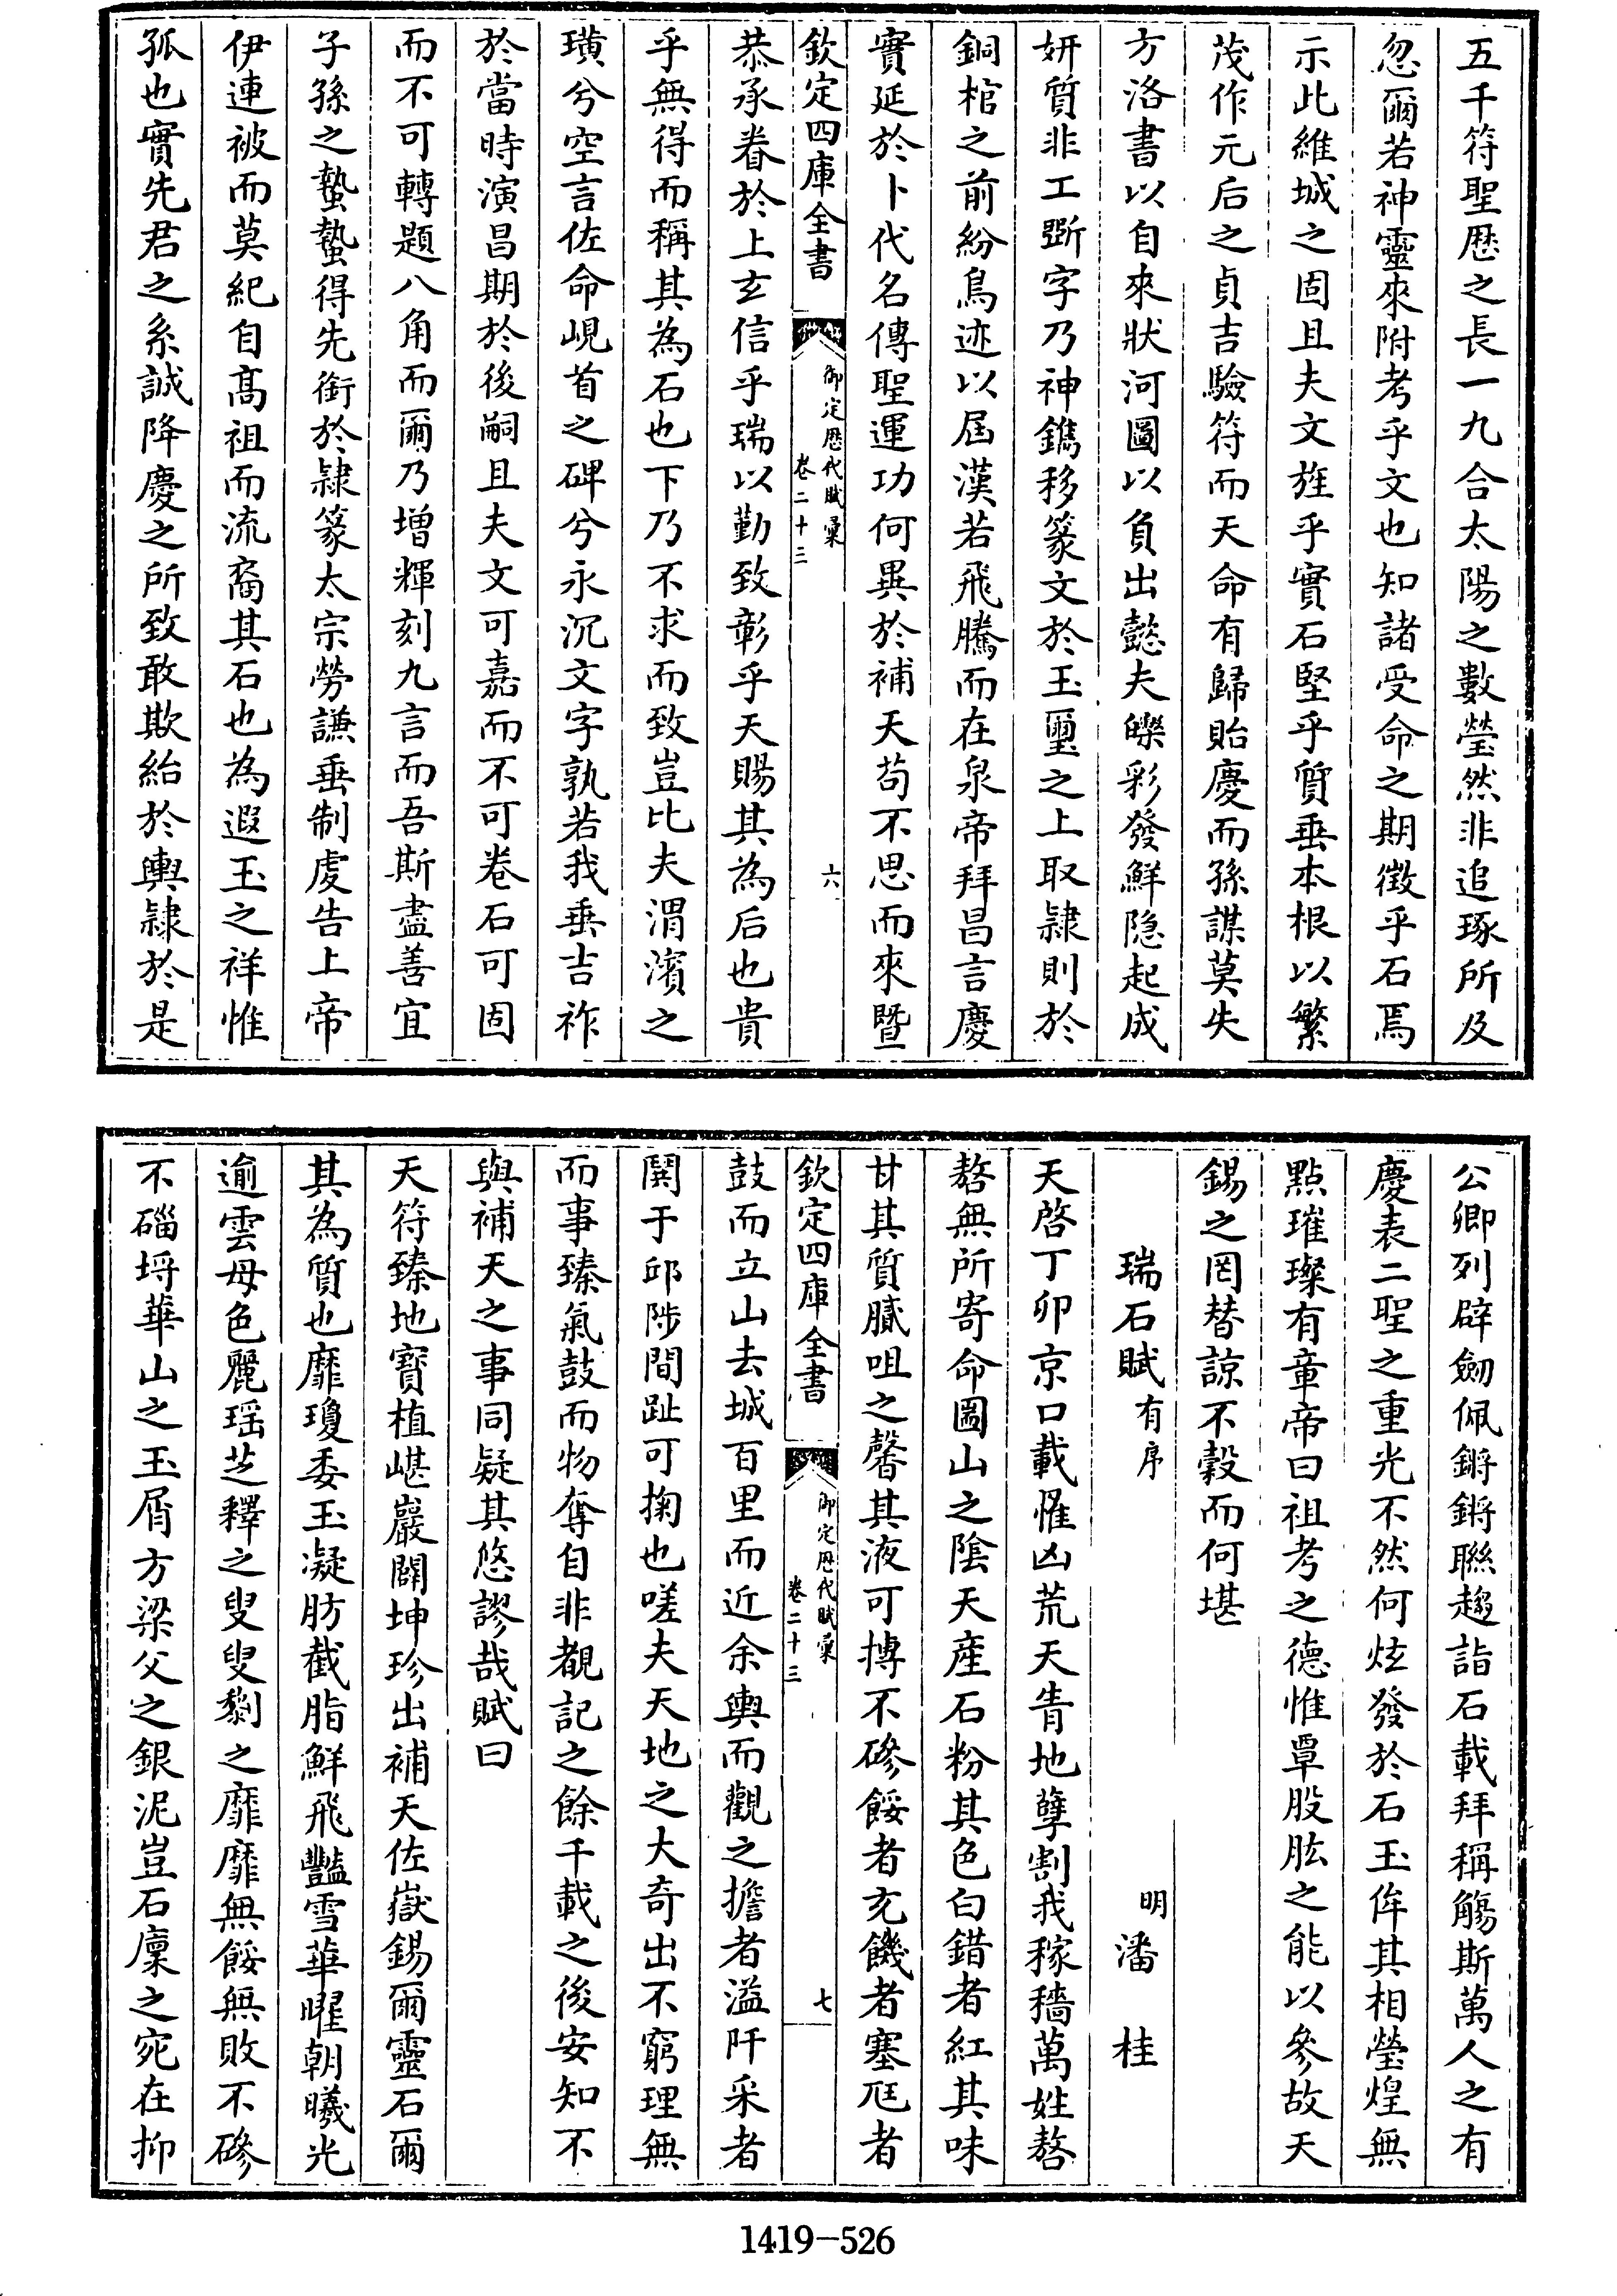 五千符聖歴之長一九合太陽之數瑩然非追琢所及
忽爾若神靈來附考乎文也知諸受命之期徴乎石焉
示此維城之固且夫文旌乎實石堅乎質垂本根以繁
茂作元后之貞吉驗符而天命有歸貽慶而孫謀莫失
方洛書以自來狀河圖以負出懿夫皪彩發鮮隐起成
妍質非工斲字乃神鐫移篆文於玉璽之上取隷則於
銅棺之前紛鳥迹以屈漢若飛騰而在泉帝拜昌言慶
實延於卜代名傳聖運功何異於補天苟不思而來暨
欽定四庫全書
御定歴代賦彙
卷二十三
六
恭承眷於上玄信乎瑞以勤致彰乎天賜其為后也貴
乎無得而稱其為石也下乃不求而致豈比夫渭濱之
璜兮空言佐命峴首之碑兮永沉文字孰若我垂吉祚
於當時演昌期於後嗣且夫文可嘉而不可卷石可固
而不可轉題八角而爾乃增輝刻九言而吾斯盡善宜
子孫之蟄蟄得先銜於隷篆太宗勞謙垂制虔告上帝
伊連被而莫紀自髙祖而流裔其石也為遐玉之祥惟
孤也實先君之系誠降慶之所致敢欺紿於輿隷於是
公卿列辟劒佩鏘鏘聯趨詣石載拜稱觴斯萬人之有
慶表二聖之重光不然何炫發於石玉侔其相瑩煌無
點璀璨有章帝曰祖考之德惟覃股肱之能以參故天
錫之罔替諒不穀而何堪
瑞石賦有序
明潘桂
天啓丁卯京口載罹凶荒天眚地孽割我稼穡萬姓嗸
嗸無所寄命圌山之陰天産石粉其色白錯者紅其味
甘其質膩咀之馨其液可摶不磣餒者充饑者塞尫者
欽定四庫全書
御定歴代賦彙
卷二十三
七
鼓而立山去城百里而近余輿而觀之擔者溢阡采者
鬨于邱陟間趾可掬也嗟夫天地之大奇出不窮理無
而事臻氣鼓而物奪自非覩記之餘千載之後安知不
與補天之事同疑其悠謬哉賦曰
天符臻地寳植嵁巖闢坤珍出補天佐嶽錫爾靈石爾
其為質也靡瓊委玉凝肪截脂鮮飛豔雪華曜朝曦光
逾雲母色麗瑶芝釋之叟叟剺之靡靡無餒無敗不磣
不碯埒華山之玉屑方梁父之銀泥豈石廩之宛在抑
1419-526